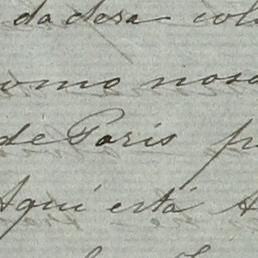 dadosa col
omo noso
de Paris pr
Aqui está A